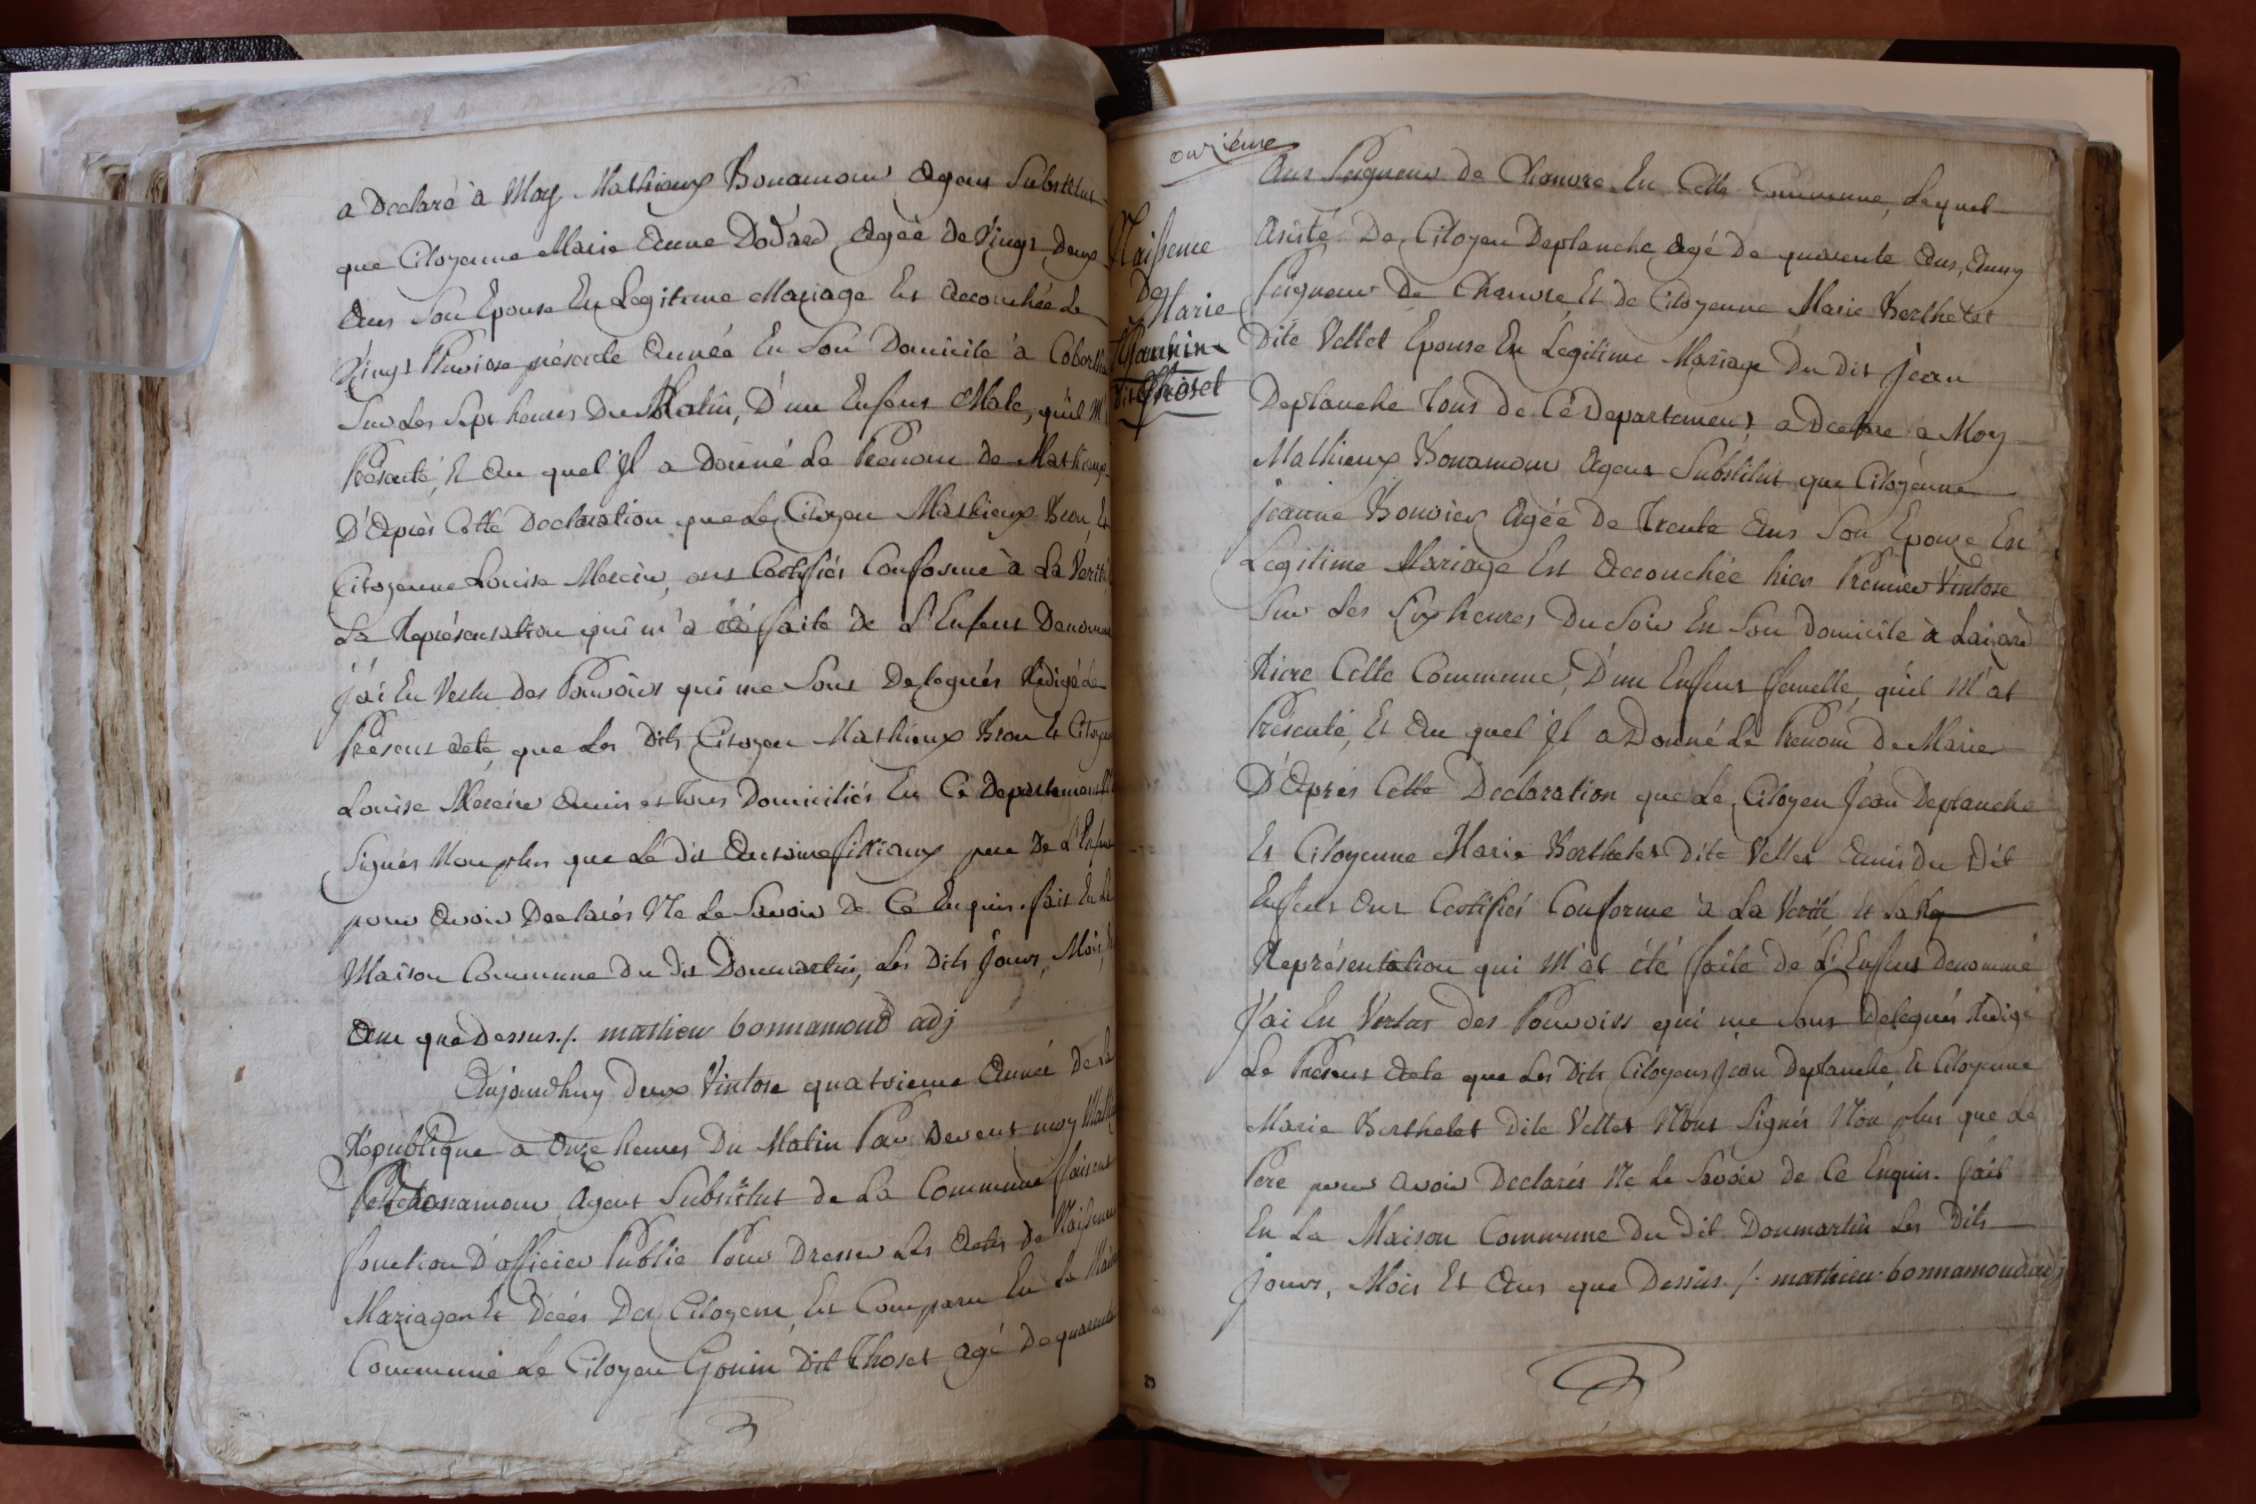 a Declaré à Moy Mathieux Bonamour Agent Substitut
que Citoyenne Marie Anne Dodred Agée de Vingt Deux
Ans Son Epouse En Legitime Mariage Est Accouchée Le
Vingt Pluviose présente Année En Son Domicile à
Sur Les Sept heures Du Matin, D'un Enfant Male, qu'il M'
Présenté, Et Au quel Jl a Donné Le Prenom De Mathieux
D'Après Cette Declaration que Le Citoyen Mathieux Bron Et
Citoyenne Louise Mercier, ont Certifiés Conforme à La Vérité
La Représentation qui m'a été faite de L'Enfant Denommé
J'ai En Vertu Des Pouvoirs qui me Sont Delegués Rédigé Le
Présent acte, que Les Dits Citoyen Mathieux Bron Et Citoyen
Louise Mercier Amis et Tous Domiciliés En Ce Departement
Signés Non plus que Le Dit Antoine père De L'Enfant
pour Avoir Declarés Ne Le Savoir De Ce Enquis. fait En La
Maison Commune Du Dit Donmartin, Les Dits Jours, Mois,
Ans que Dessus ./. mathieu bonnamoud adj
Aujourdhuy Deux Vintose quatrieme Année De La
République a Onze heures Du Matin Par Devent moy
Bonamour Agent Substitut de La Commune faisant
fonction D'officier Public Pour Dresser Les Actes de Naissence
Mariages Et Décés Des Citoyens, Est Comparu En La Maison
Commune Le Citoyen Gonin Dit Thoset agé De quarante
onzième
Naissence
De
Marie
Gonnin
dit Thoset
Ans Peigneur de Chanvre En Cette Commune, Lequel
Asisté De Citoyen Deplanche Agé De quarente Ans, Aussy
Peigneur De Chanvre Et De Citoyenne Marie Berthelet
Dite Vellet Epouse En Légitime Mariage Du Dit Jean
Deplanche Tous De Cé Departement a Declaré a Moy
Mathieux Bonamour Agent Substitut que Citoyenne
Jeanne Bouvier Agée De Trente Ans Son Epouse En
Legitime Mariage Est Accouchée hier Premier Vintose
Sur Les Six heures Du Soir En Son Domicile à
Cette Commune, D'un Enfant femelle, qu'il M'at
Présenté, Et Au quel Jl a Donné Le Prenom De Marie
D'Après Cette Declaration que Le Citoyen Jean Deplanche
Et Citoyenne Marie Berthelet Dite Vellet Amis Du Dit
Enfant Ont Certifiés Conforme à La Verité Et La Rep
Représentation qui M'at été faite de L'Enfant Denommé
J'ai En Vertus Des Pouvoirs qui me Sont Delegués Rédigé
Le Présent Acte que Les Dits Citoyens Jean Deplanche Et Citoyenne
Marie Berthelet Dite Vellet N'ont Signés Non plus que Le
Père pour avoir Declarés Ne Le Savoir De Ce Enquis. fait
En La Maison Commune Du Dit Donmartin Les Dits
Jours, Mois Et Ans que Dessus ./. mathieu bonnamoud adj